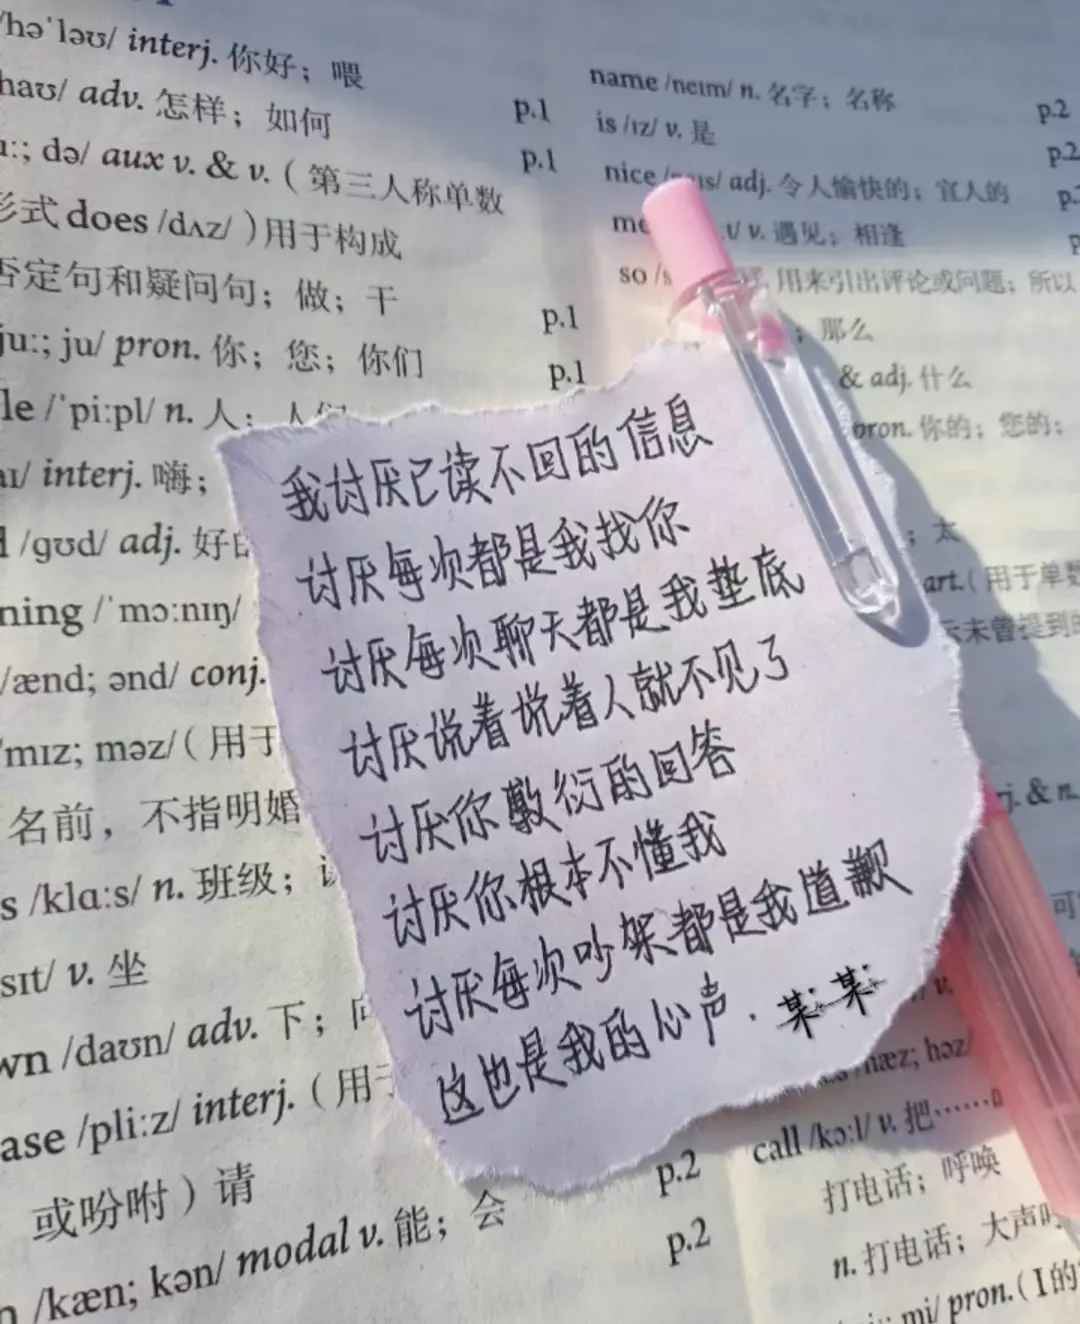 /həˈləʊ/ interj. 你好；喂
haʊ/ adv. 怎样；如何 p.1
ː; də/ aux v. & v.（第三人称单数 p.1
形式 does /dʌz/ ）用于构成
否定句和疑问句；做；干
juː; ju/ pron. 你；您；你们 p.1
le /ˈpiːpl/ n. 人； p.1
aɪ/ interj. 嗨；
/ɡʊd/ adj. 好
ning /ˈmɔːnɪŋ/
/ænd; ənd/ conj.
mɪz; məz/（用于
名前，不指明婚
s /klɑːs/ n. 班级；
sɪt/ v. 坐
wn /daʊn/ adv. 下；向
ase /pliːz/ interj.（用于
或吩咐）请 p.2
n /kæn; kən/ modal v. 能；会 p.2
name /neɪm/ n. 名字；名称 p.2
is /ɪz/ v. 是 p.2
nice adj. 令人愉快的；宜人的
me t/ v. 遇见；相逢
so /s 用来引出评论或问题；所以
；那么
& adj. 什么
pron. 你的；您的；
；太
art.（用于单数
未曾提到的
我讨厌已读不回的信息
讨厌每次都是我找你
讨厌每次聊天都是我垫底
讨厌说着说着人就不见了
讨厌你敷衍的回答
讨厌你根本不懂我
讨厌每次吵架都是我道歉
这也是我的心声．某某
rj. & n.
可
v.
hæz; həz/
call /kɔːl/ v. 把……叫
打电话；呼唤
n. 打电话；大声呼
mi/ pron.（I的